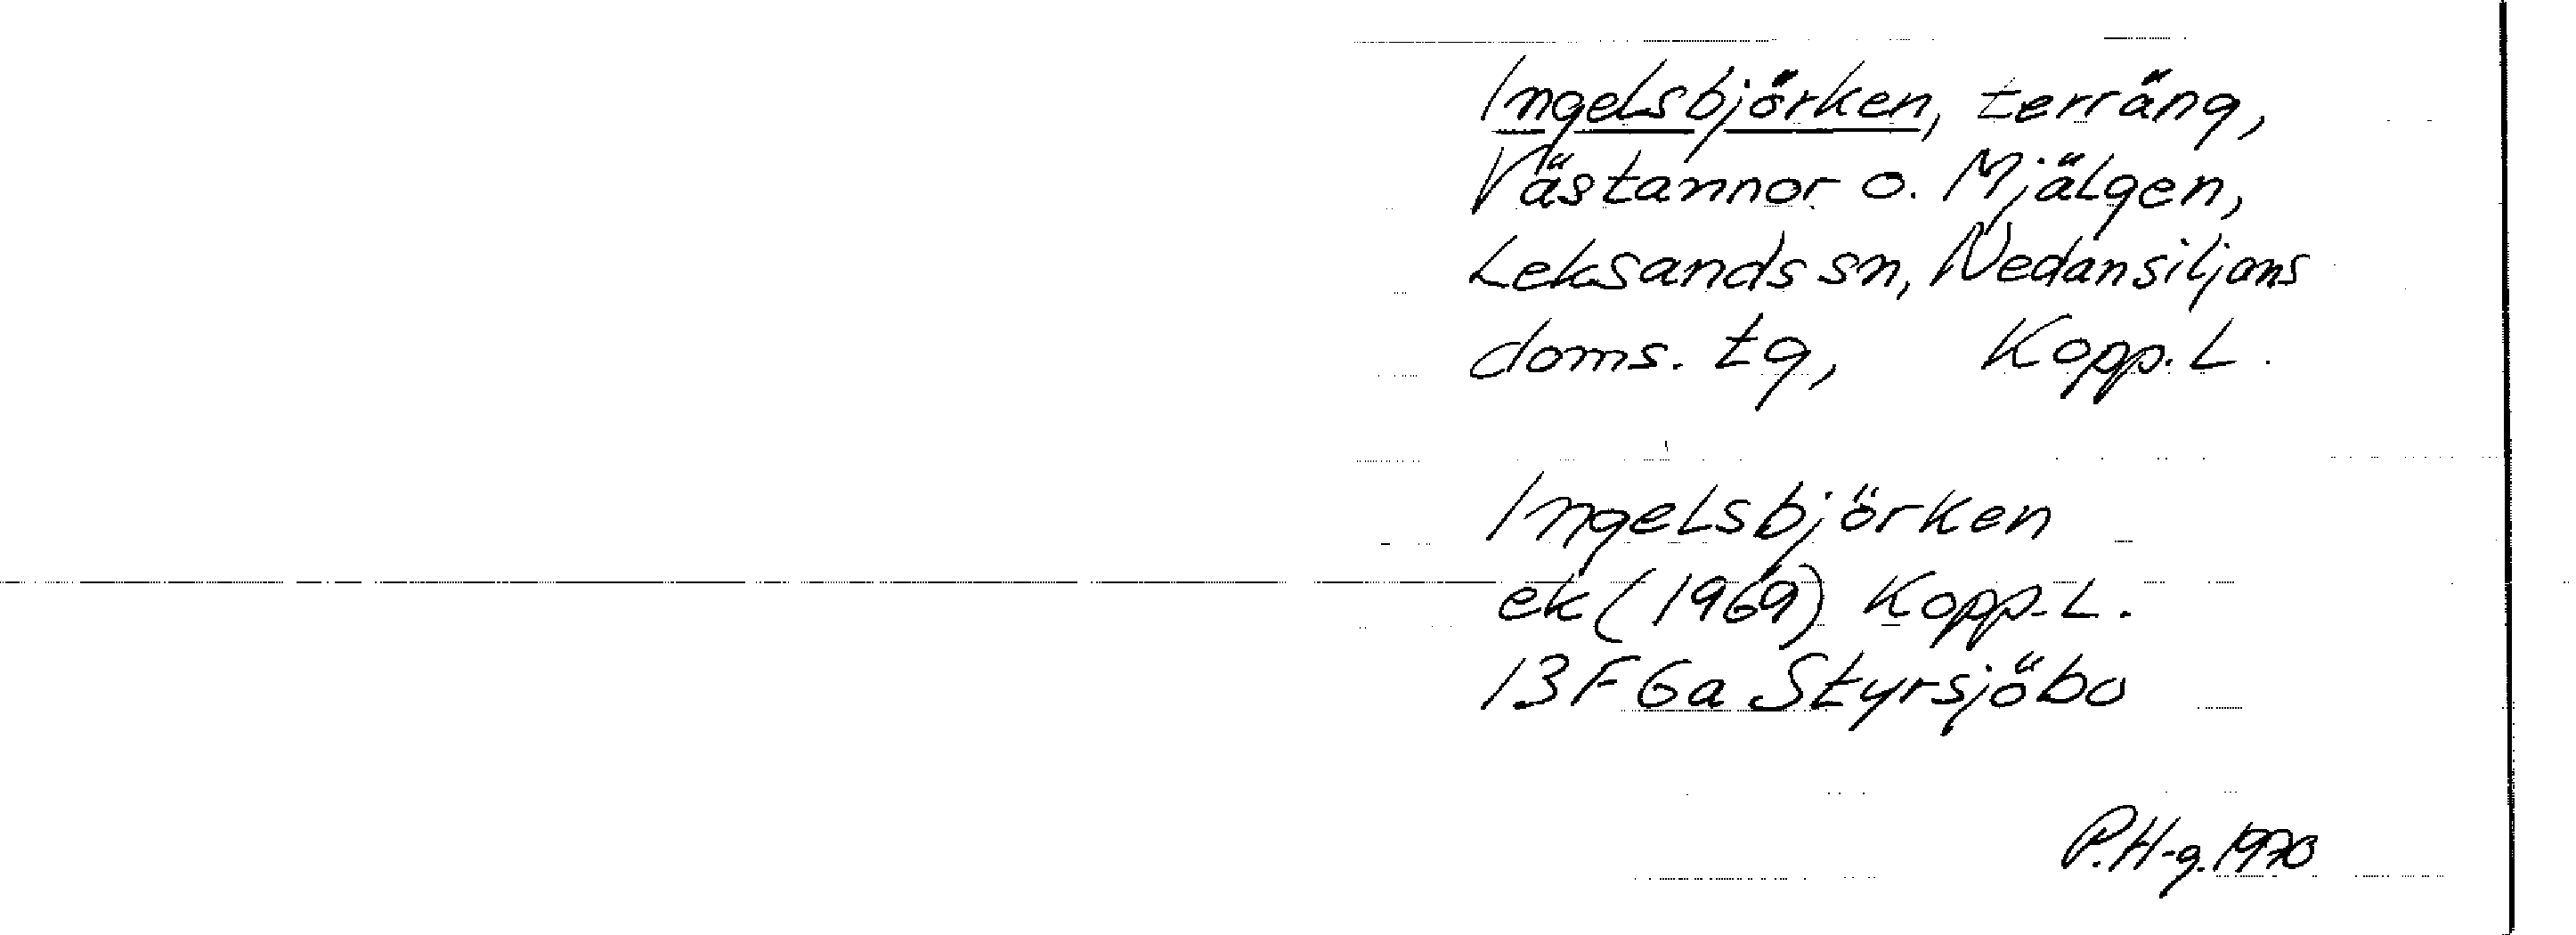 Ingelsbjörken, terräng,
Västannor o. Mjälgen,
Leksands sn, Nedansiljans
doms. tg, Kopp. L.
Ingelsbjörken
ek (1969) Kopp. L.
13F6a Styrsjöbo
P.H-g. 1970